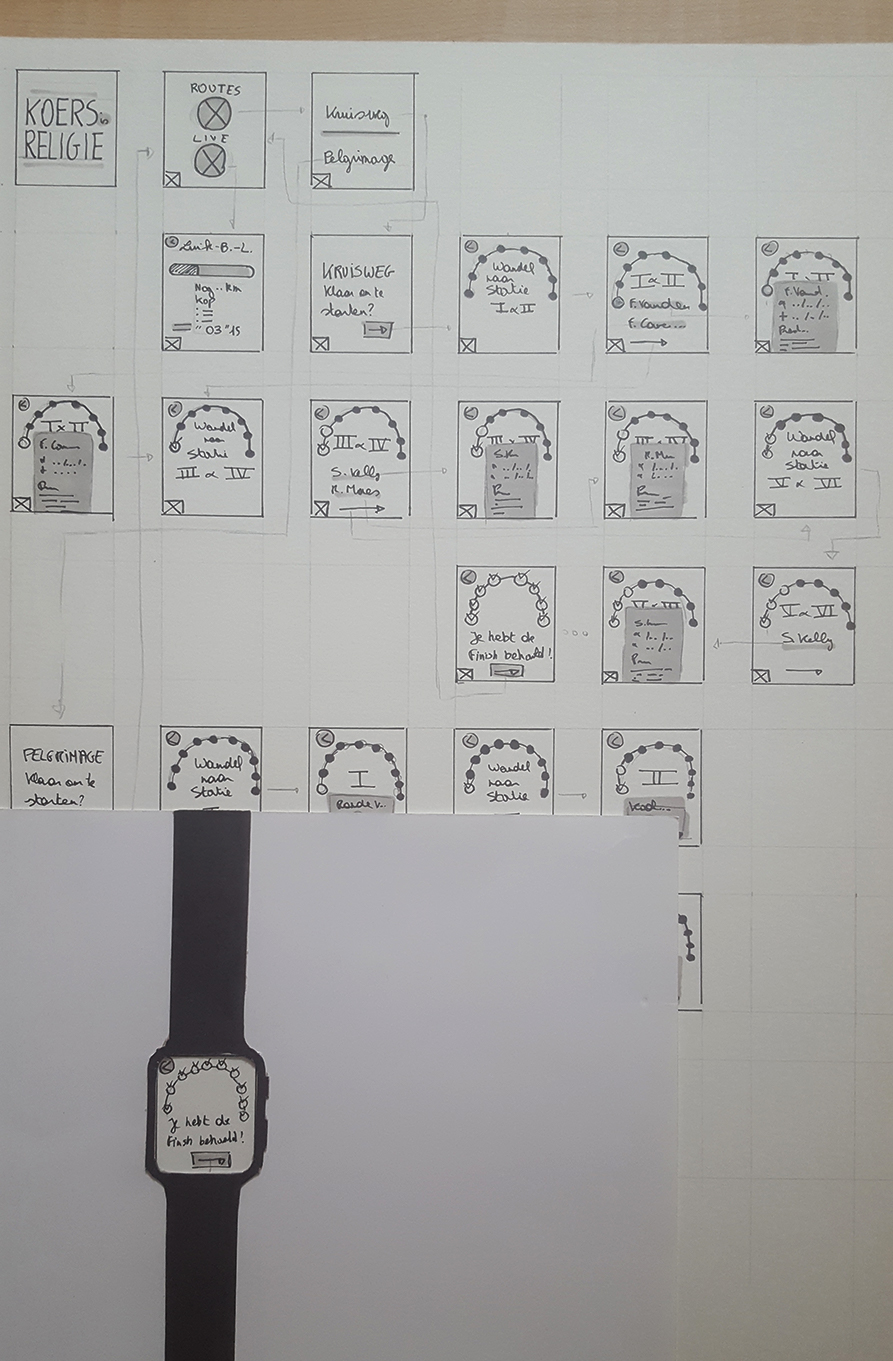 KOERS is
RELIGIE
ROUTES
LIVE
Kruisweg
Pelgrimage
Luik-B.-L.
Nog .. km
Kop
" 03 "15
KRUISWEG
Klaar om te
starten?
Wandel
naar
Statie
I & II
I & II
F. Vanden
F. Cove...
I & II
F. Vand.
* ../../..
+ ../../..
I & II
Wandel
naar
Statie
III & IV
III & IV
S. Kelly
R. Maes
III & IV
III & IV
Wandel
naar
Statie
V & VI
Je hebt de
finish behaald!
V & VI
S. Kelly
PELGRIMAGE
Klaar om te
starten?
Wandel
naar
Statie
I
Wandel
naar
Statie
II
Je hebt de
finish behaald!